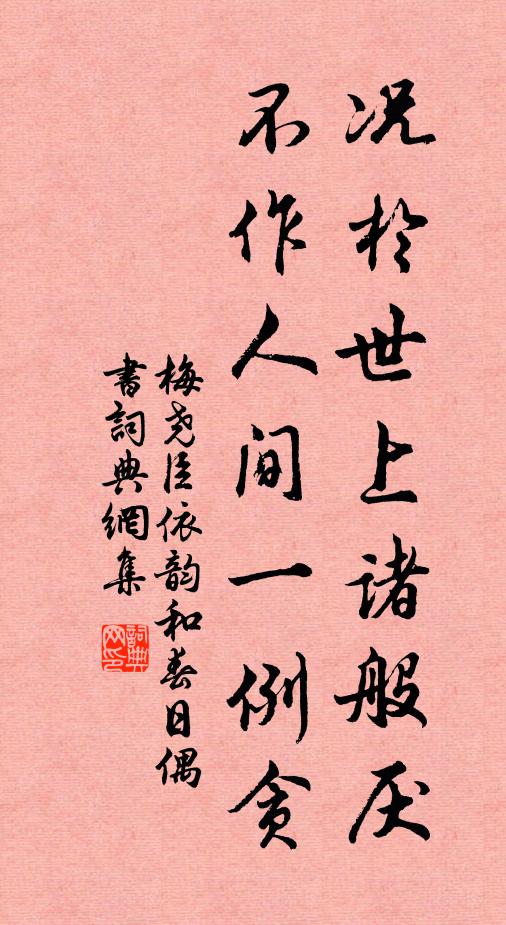 况於世上诸般厌
不作人间一例贪
梅尧臣依韵和春日偶
書詞典網集
詞典网印